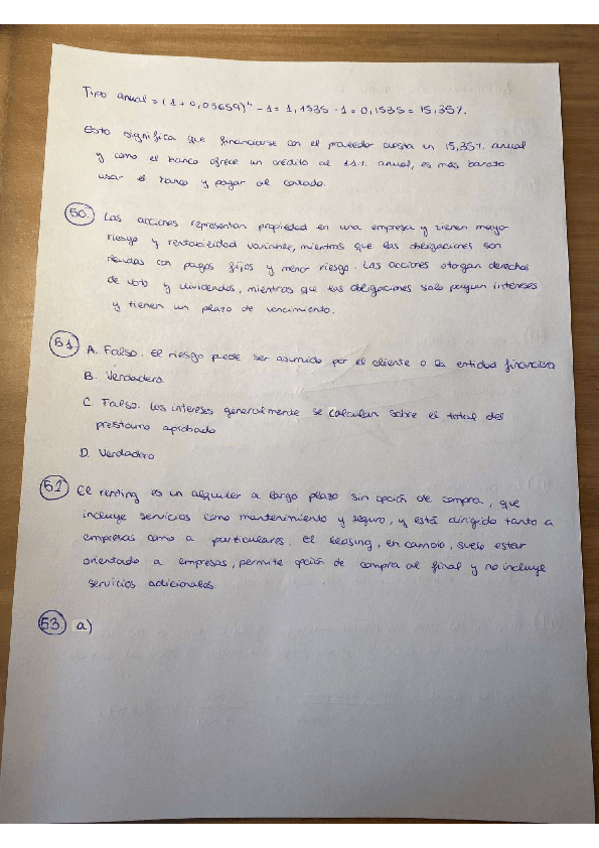 Tipo anual = (1 + 0,03659)⁴ - 1 = 1,1535 - 1 = 0,1535 = 15,35%.
Esto significa que financiarse con el proveedor cuesta un 15,35% anual
y como el banco ofrece un crédito al 11% anual, es más barato
usar el banco y pagar al contado.
50. Las acciones representan propiedad en una empresa y tienen mayor
riesgo y rentabilidad variable, mientras que las obligaciones son
deudas con pagos fijos y menor riesgo. Las acciones otorgan derechos
de voto y dividendos, mientras que las obligaciones solo pagan intereses
y tienen un plazo de vencimiento.
51. A. Falso. El riesgo puede ser asumido por el cliente o la entidad financiera
B. Verdadero.
C. Falso. Los intereses generalmente se calculan sobre el total del
préstamo aprobado
D. Verdadero
51. El renting es un alquiler a largo plazo sin opción de compra, que
incluye servicios como mantenimiento y seguro, y está dirigido tanto a
empresas como a particulares. El leasing, en cambio, suele estar
orientado a empresas, permite opción de compra al final y no incluye
servicios adicionales.
53. a)